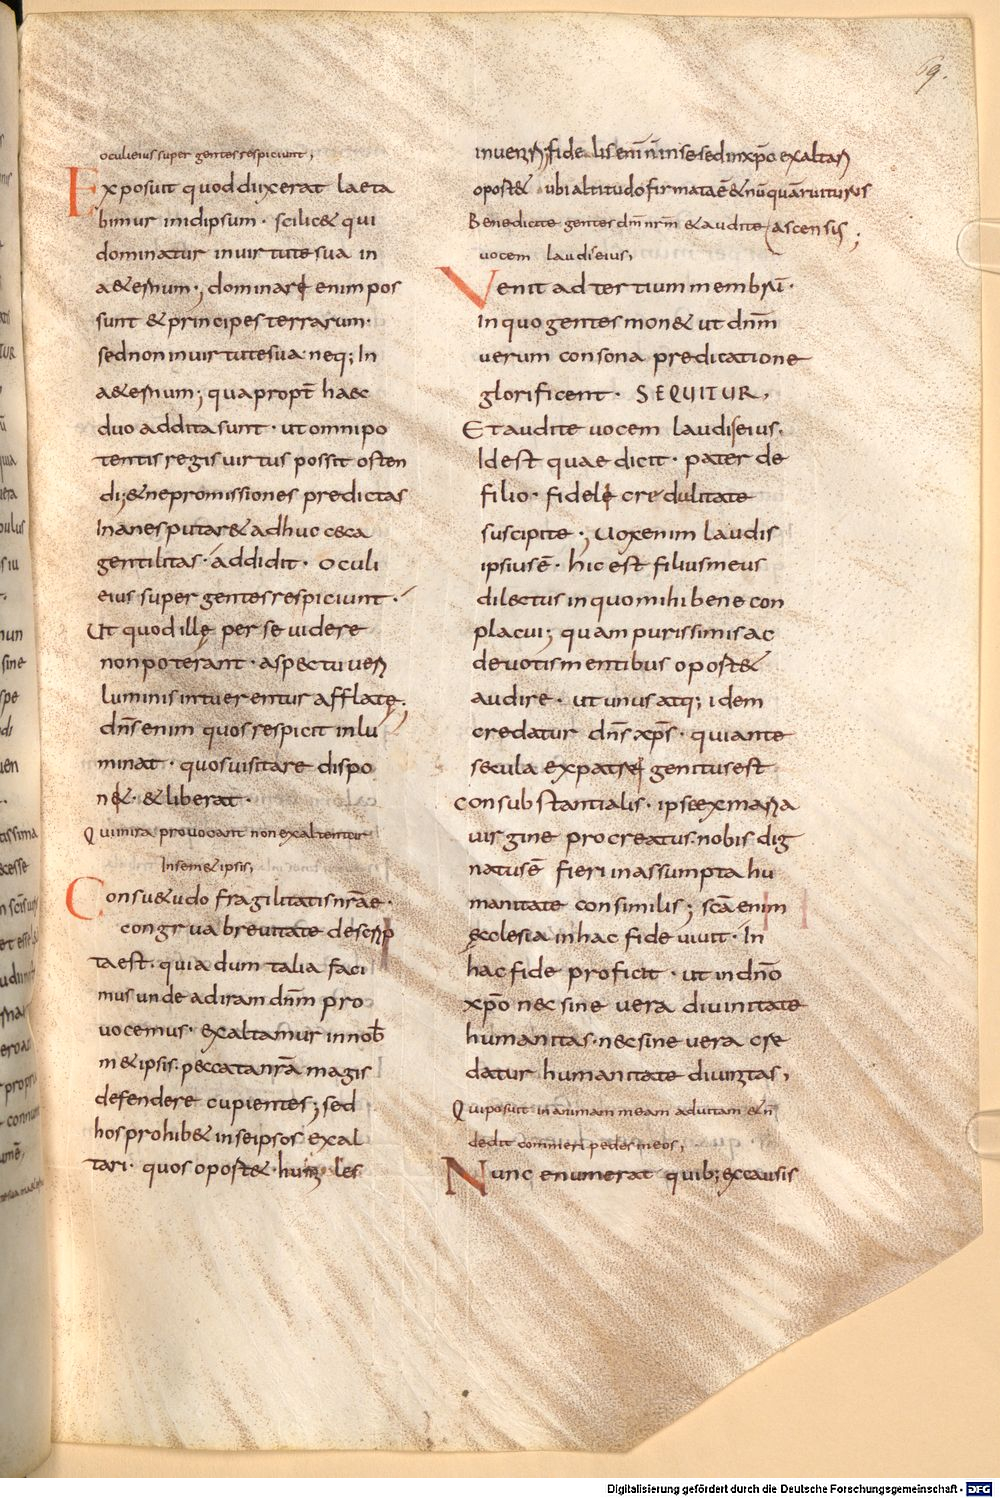 69.
oculi eius super gentes respiciunt;
Exposuit quod dixerat laeta
bimur in idipsum · scilic& qui
dominatur in uirtute sua in
a&ernum; dominari enim pos
sunt & principes terrarum·
sed non in uirtute sua neq; In
a&ernum; quapropt̄ haec
duo addita sunt · ut omnipo
tentis regis uirtus possit osten
di; & ne promissiones predictas
Inanes putar& adhuc ceca
gentilitas · addidit · Oculi
eius super gentes respiciunt ·
Ut quod ille per se uidere
non poterant · aspectu ueri
luminis intuerentur afflatę;
dn̄s enim quos respicit inlu
minat · quos uisitare dispo
n& · & liberat ·
Qui in ira prouocant non exaltentur
In sem&ipsis;
Consu&udo fragilitatis nr̄ae ·
congrua breuitate descrip
ta est · quia dum talia faci
mus unde ad iram dn̄m pro
uocemus · exaltamur in nob̄
m&ipsis · peccata nr̄a magis
defendere cupientes; sed
hos prohib& in seipsos exal
tari · quos oport& · humiles
inueniri; fideles enī n̄ in se sed in xp̄o exaltari
oport& ubi altitudo firmata ē & nūquā ruiturus
Benedicite gentes dm̄ nrm̄ & audite ascensis;
uocem laudis eius;
Venit ad tertium membrū ·
In quo gentes mon& ut dn̄m
uerum consona predicatione
glorificent · SEQUITUR,
Et audite uocem laudis eius ·
Id est quae dicit · pater de
filio · fideli credulitate
suscipite; Uox enim laudis
ipsius ē · hic est filius meus
dilectus in quo mihi bene con
placui; quam purissimis ac
deuotis mentibus oport&
audire · ut unus atq; idem
credatur dn̄s xp̄s · qui ante
secula ex patre genitus est
consubstantialis · ipse ex maria
uirgine procreatus · nobis dig
natus ē fieri in assumpta hu
manitate consimilis; sc̄a enim
ęcclesia in hac fide uiuit · In
hac fide proficit · ut in dn̄o
xp̄o nec sine uera diuinitate
humanitas · nec sine uera cre
datur humanitate diuinitas,
Qui posuit in animam meam ad uitam & n̄
dedit commoueri pedes meos;
Nunc enumerat quib; ex causis
Digitalisierung gefördert durch die Deutsche Forschungsgemeinschaft · DFG